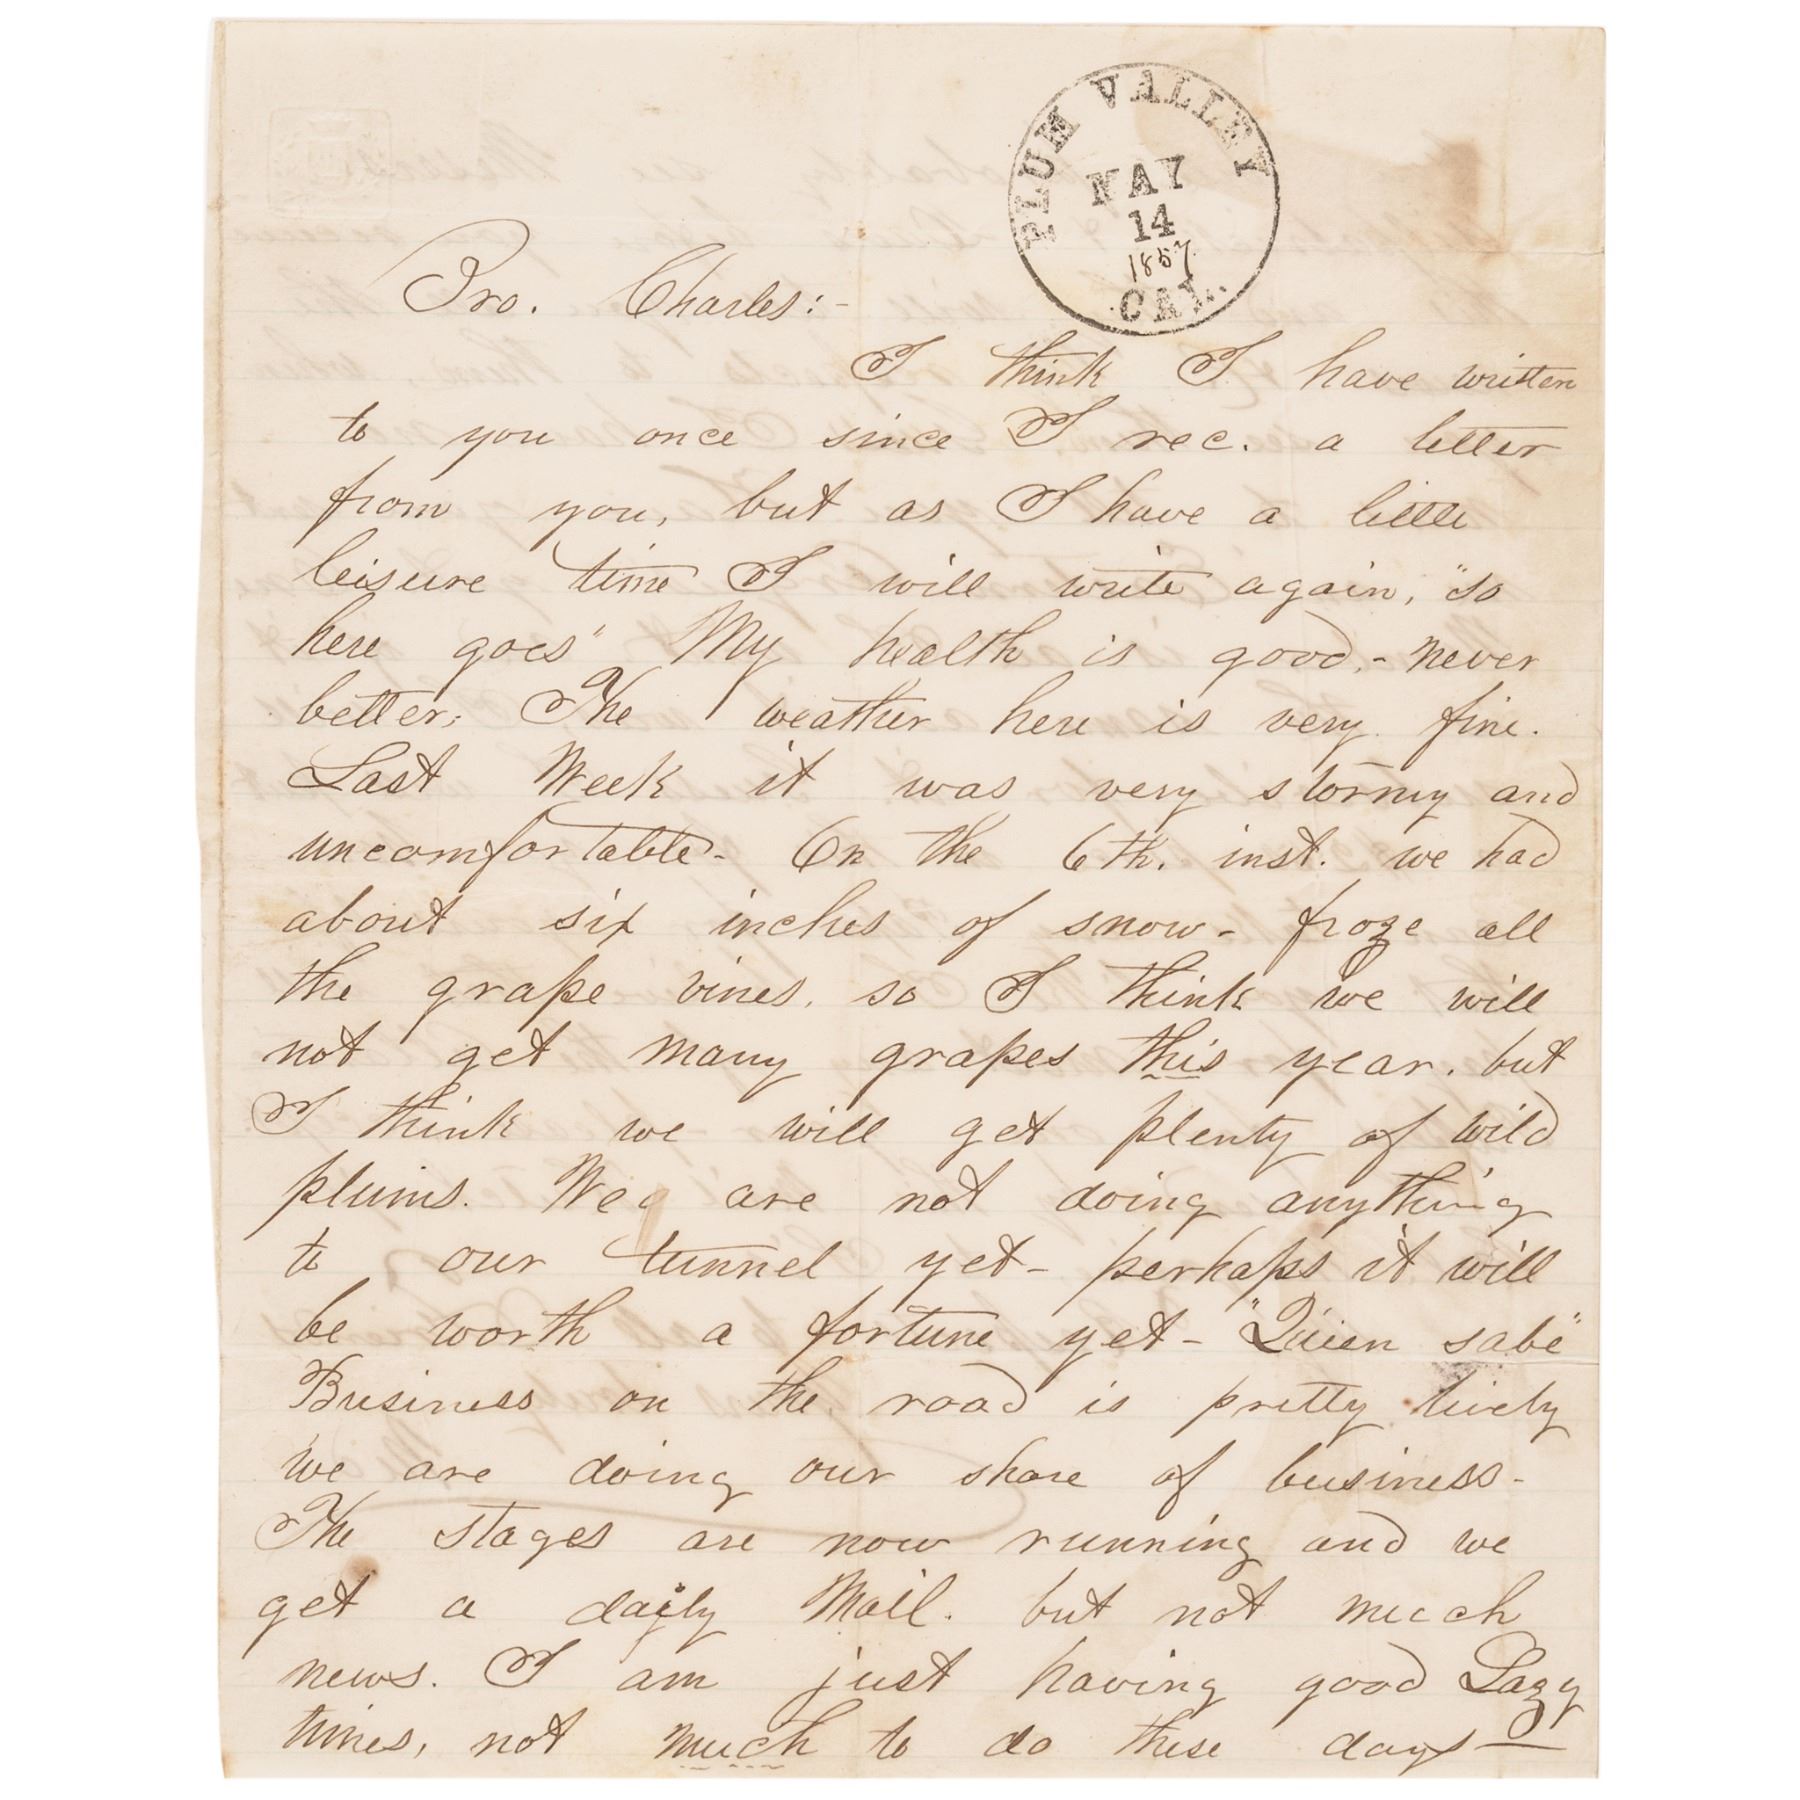 PLUM VALLEY
MAY
14
1857
CAL.
Bro. Charles:-
I think I have written
to you once since I rec. a letter
from you, but as I have a little
leisure time I will write again, "so
here goes" My health is good,- never
better. The weather here is very fine.
Last Week it was very stormy and
uncomfortable- On the 6th. inst. we had
about six inches of snow- froze all
the grape vines. so I think we will
not get many grapes this year. but
I think we will get plenty of wild
plums. We are not doing anything
to our tunnel yet- perhaps it will
be worth a fortune yet- "Quien sabe"
Business on the road is pretty lively
we are doing our share of business-
The stages are now running and we
get a daily Mail. but not much
news. I am just having good Lazy
times, not much to do these days—